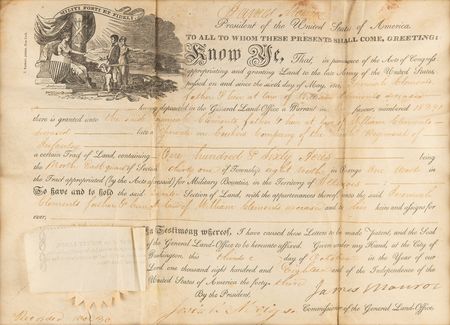 MILITI FORTI ET FIDELI
James Monroe
President of the United States of America.
TO ALL TO WHOM THESE PRESENTS SHALL COME, GREETING:
Know Ye, That, in pursuance of the Acts of Congress
appropriating and granting Land to the late Army of the United States,
passed on and since the sixth day of May, 1812,
father & heir at law of William
having deposited in the General Land-Office a Warrant in favour, numbered
there is granted unto the said Clements father & heir at law of William Clements
deceased late a Private in Company of the Regiment of
Infantry
a certain Tract of Land, containing One hundred & sixty Acres being
the North East quarter of Section thirty one of Township eight North in Range one West
in the Tract appropriated (by the Acts aforesaid) for Military Bounties, in the Territory of Illinois
To have and to hold the said quarter Section of Land, with the appurtenances thereof, unto the said
Clements father & heir at law of William Clements deceased and to his heirs and assigns for-
ever.
In Testimony whereof, I have caused these Letters to be made Patent, and the Seal
of the General Land-Office to be hereunto affixed. Given under my Hand, at the City of
Washington, this third day of October in the Year of our
Lord one thousand eight hundred and Eighteen and of the Independence of the
United States of America the forty-third
By the President, James Monroe
Commissioner of the General Land-Office.
Recorded